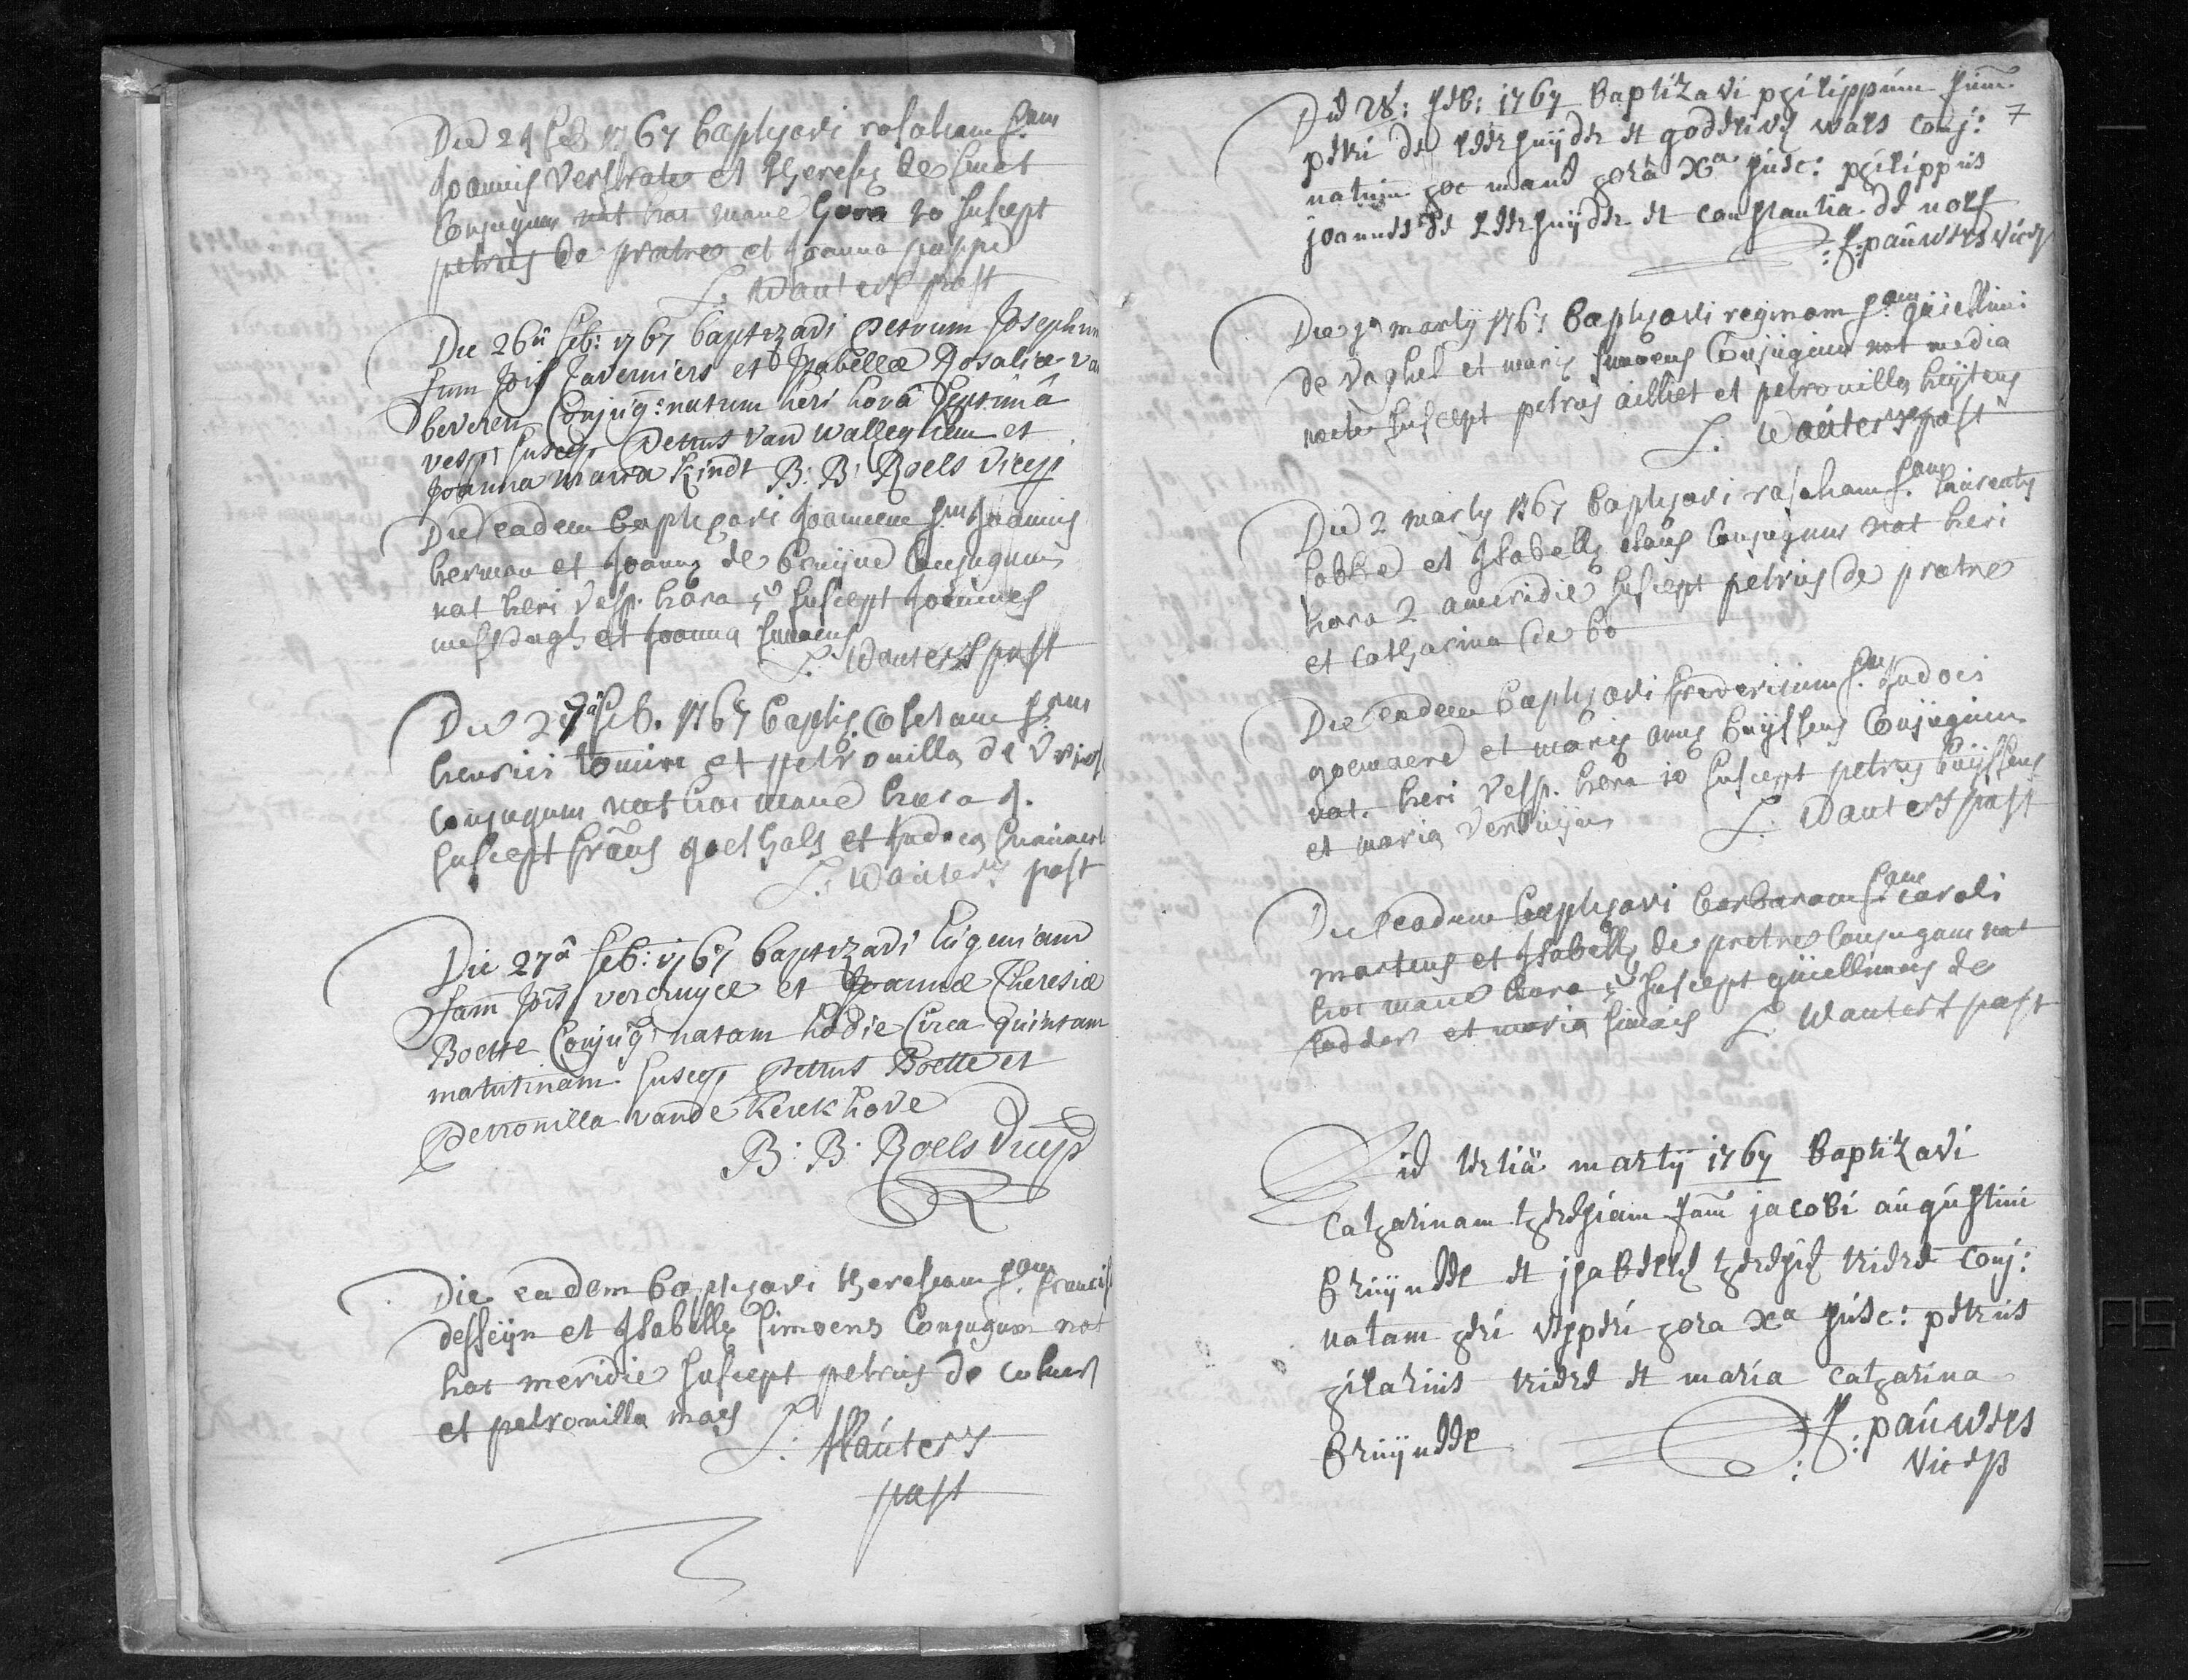 Die 24 feb 1767 baptizavi rosaliam f.am
Joannis Verstrate et Theresiæ de smet
Conjugum nat hac mane hora 10 suscept
petrus de pratre et Joanna pappe
L. Wauters past
Die 26â feb: 1767 baptizavi Petrum Josephum
fium Jois Taverniers et Isabellæ Rosaliæ van
beveren Conjug: natum heri horâ septimâ
vesp: suscep Petrus van Walleghem et
Joanna Maria Kindt B: B: Roels vicep
Die eadem baptizavi Joannem f.um Joannis
herman et Joannæ de bruijne Conjugum
nat heri vesp. hora 5 suscept Joannes
mesdagh et Joanna simoens
L. Wauters past
Die 27â feb. 1767 baptiz. Coletam f.am
henrici et petronilla de vriese
conjugum nat hac mane hora
suscept frans goethals et Judoca
L. Wauters past
Die 27â feb: 1767 baptizavi Eugeniam
fam Jois vercruyce et Joannæ Theresiæ
Boette Conjug: natam hodie circa quintam
matutinam suscep Petrus Boette et
Petronilla vande Kerckhove
B: B: Roels vicep
Die eadem baptizavi theresiam f.am francis
desseijn et Isabellæ Simoens Conjugum nat
hac meridie suscept petrus de
et petronilla maes
L: Wauters
past
7
Die 28: feb: 1767 baptizavi philippum fium
petri de leersnijder et godelivæ wals conj:
natum hoc mane horâ xa susc: philippus
joannes de leersnijder et constantia de nolf
f: pauwels vicep
Die 1a martij 1767 baptizavi reginam f.am guiellimi
de vaghel et mariæ simoens Conjugum nat media
nocte suscept petrus ailliet et petronilla heijtens
L. Wauters past
Die 2 martij 1767 baptizavi rosaliam f.am laurentij
labbe et Isabellæ claus Conjugum nat heri
hora 2 ameridie suscept petrus de pratre
et Catharina de bo
Die eadem baptizavi fredericum f.um Judoci
goemaere et mariæ annæ buijssens Conjugum
nat. heri vesp. hora 10 suscept petrus buijssens
et maria
L. Wauters past
Die eadem baptizavi barbaram f.am caroli
martens et Isabellæ de pretre Conjugum nat
hac mane hora 5 suscept guiellimus de
et maria simoens L. Wauters past
Die tertiâ martij 1767 baptizavi
catharinam theresiam fam jacobi augustini
bruijneel et isabellæ theresiæ triere conj:
natam heri vesperi hora xa susc: petrus
hilarius triere et maria catharina
bruijneel
f: pauwels
vicep